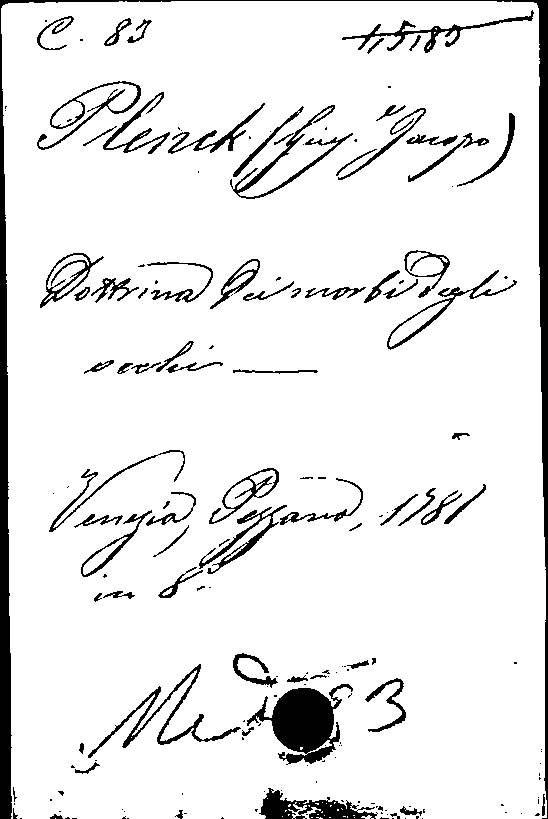 C. 83 4,5,85
Plenck (Giu. Jacopo)
Dottrina dei morbi degli
occhi —
Venezia, Pezzana, 1781
in 8°
Med 83